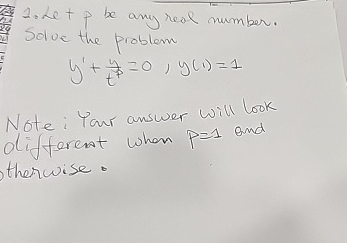 1. Let p be any real number.
Solve the problem
y' + y/t^p = 0 , y(1) = 1
Note: Your answer will look
different when p=1 and
otherwise.